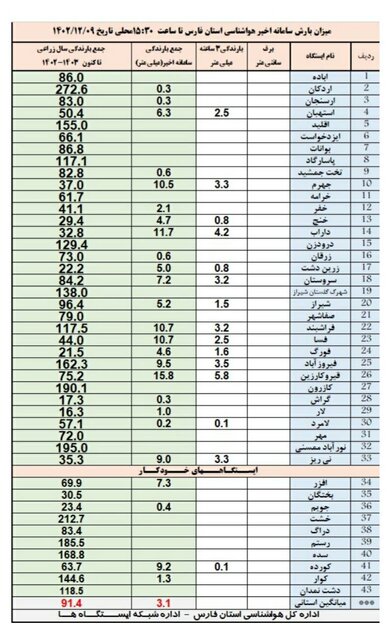 میزان بارش سامانه اخیر هواشناسی استان فارس تا ساعت ۱۵:۳۰محلی تاریخ ۱۴۰۲/۱۲/۰۹
ردیف نام ایستگاه برف سانتی متر بارندگی ۳ ساعته میلی متر جمع بارندگی سامانه اخیر(میلی متر) جمع بارندگی سال زراعی تا کنون ۱۴۰۳-۱۴۰۲
1 آباده 86.0
2 اردکان 0.3 272.6
3 ارسنجان 0.3 83.0
4 استهبان 2.5 6.3 50.4
5 اقلید 155.0
6 ایزدخواست 66.1
7 بوانات 86.8
8 پاسارگاد 117.1
9 تخت جمشید 0.6 82.8
10 جهرم 3.3 10.5 37.0
11 خرامه 61.7
12 خفر 2.1 41.1
13 خنج 0.8 4.7 29.4
14 داراب 4.2 11.7 32.8
15 درودزن 129.4
16 زرقان 0.6 73.0
17 زرین دشت 0.8 5.0 22.2
18 سروستان 3.2 7.2 84.2
19 شهرک گلستان شیراز 138.0
20 شیراز 1.5 5.2 96.4
21 صفاشهر 79.0
22 فراشبند 3.2 10.7 117.5
23 فسا 2.5 10.7 44.0
24 فورگ 1.6 4.6 21.5
25 فیروزآباد 3.5 9.5 162.3
26 قیروکارزین 5.8 15.8 75.2
27 کازرون 190.1
28 گراش 0.3 17.3
29 لار 1.0 16.3
30 لامرد 0.1 0.2 57.1
31 مهر 72.0
32 نورآباد ممسنی 195.0
33 نی ریز 3.3 9.0 35.3
ایستگاههای خودکار
34 افزر 7.3 69.9
35 بختگان 30.5
36 جویم 0.4 23.4
37 خشت 212.7
38 دراگ 83.4
39 رستم 185.5
40 سده 168.8
41 کورده 0.1 9.2 63.7
42 کوار 1.3 144.6
43 دشت نمدان 118.5
*** میانگین استانی 3.1 91.4
اداره کل هواشناسی استان فارس - اداره شبکه ایستگاه ها